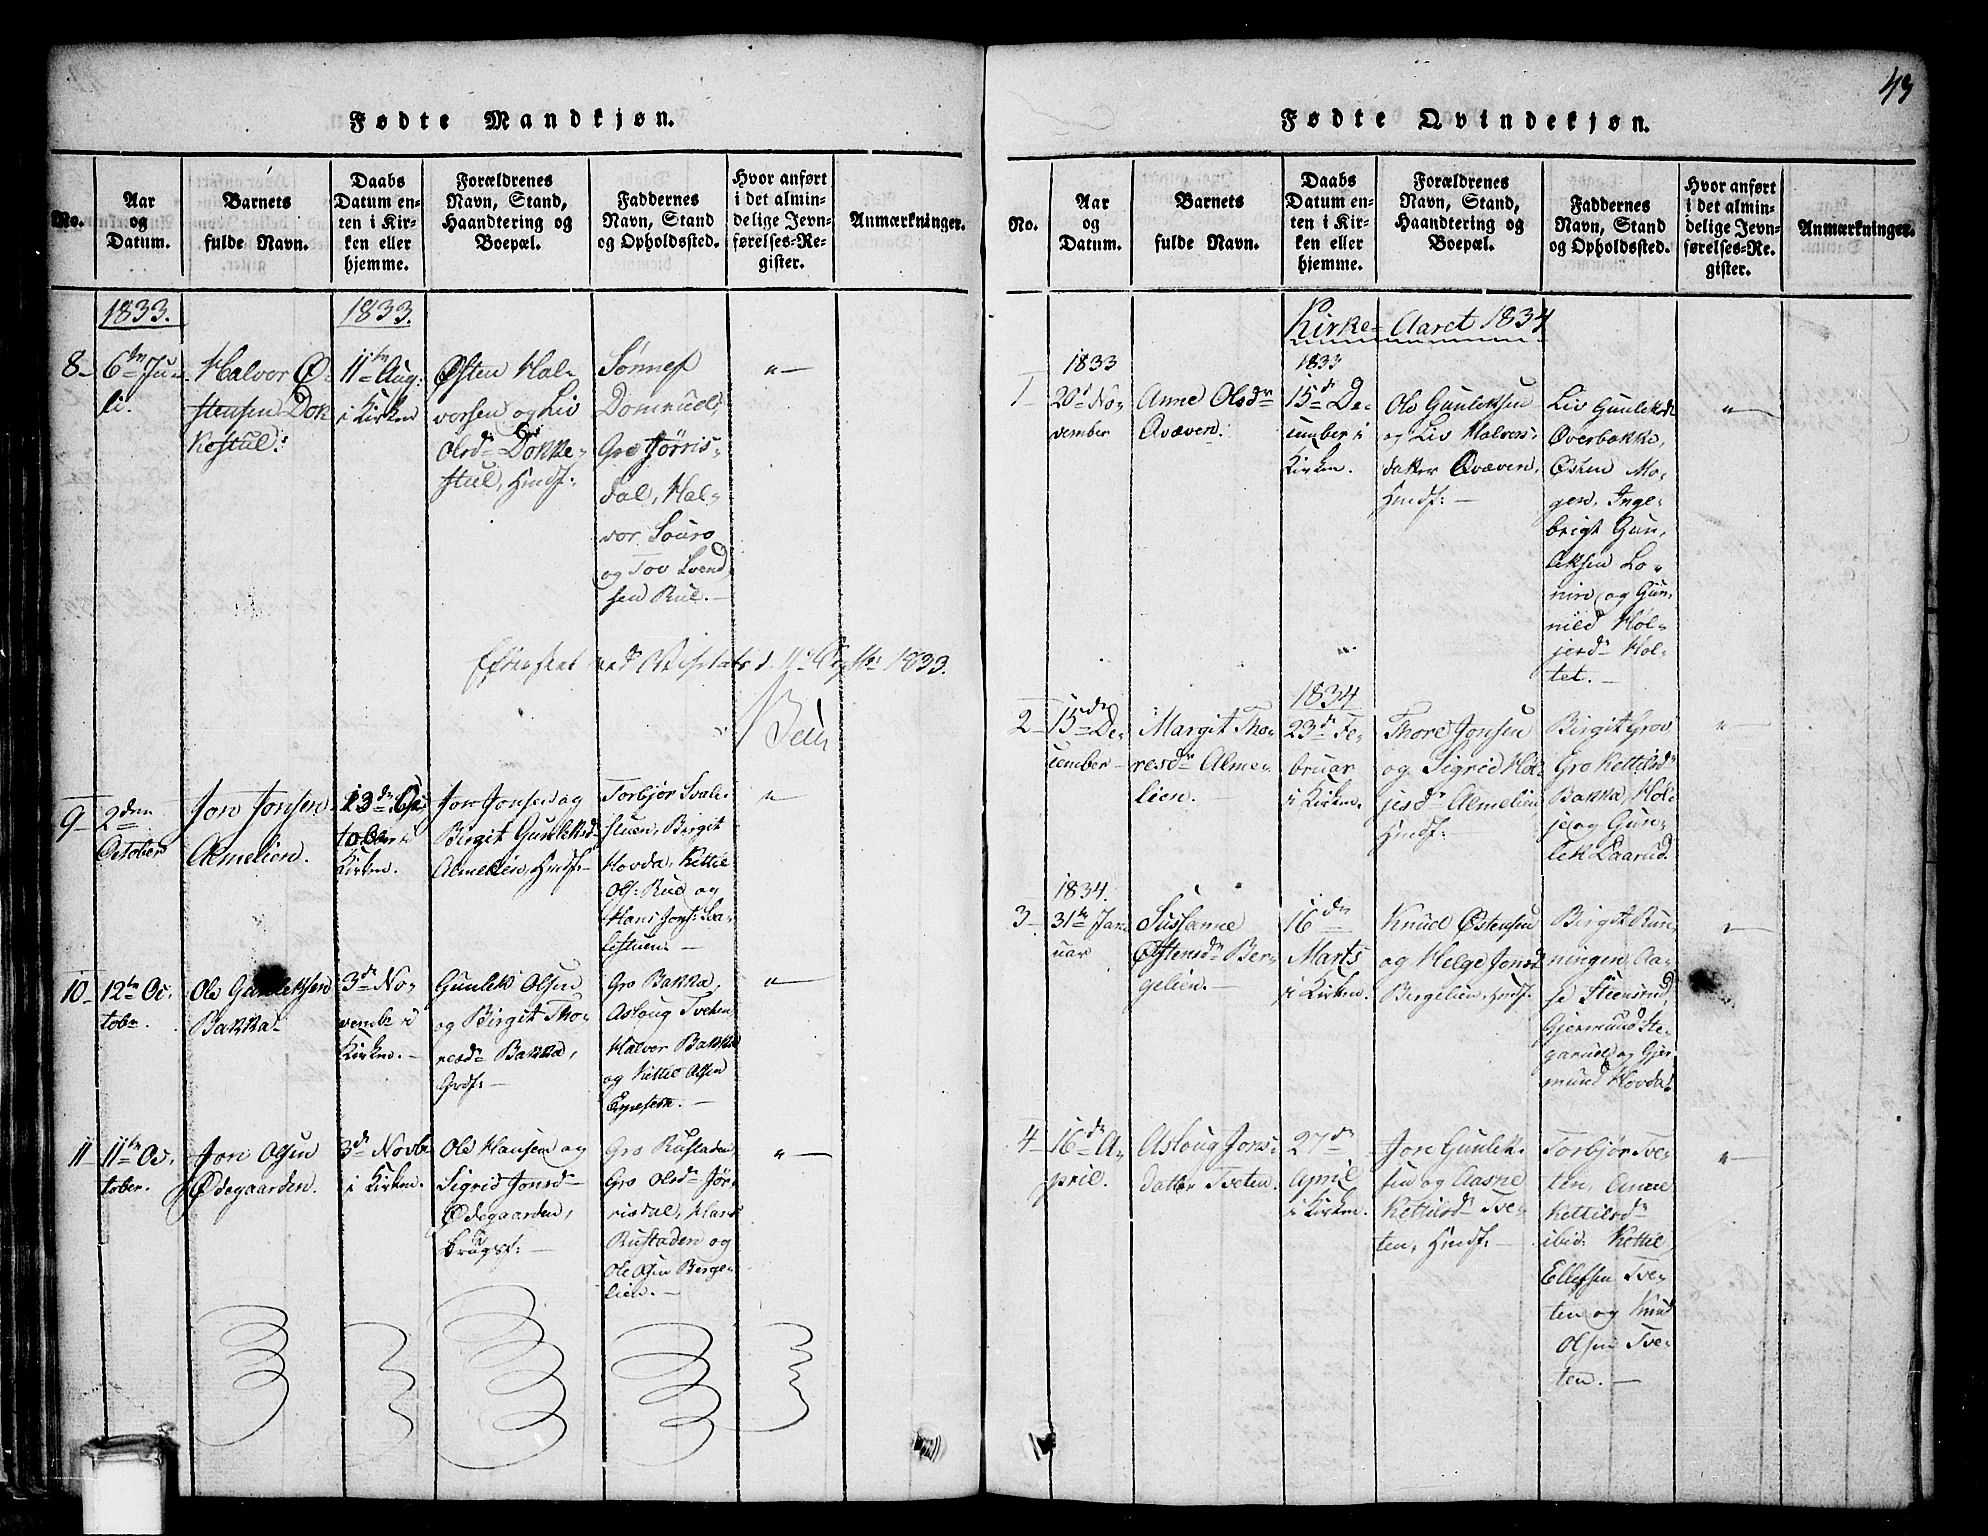 43
Fødte Mandkjøn.
No.
Aar
og
Datum.
Barnets
fulde Navn.
Daabs
Datum en-
ten i Kir-
ken eller
hjemme.
Forældrenes
Navn, Stand,
Haandtering og
Boepæl.
Faddernes
Navn, Stand
og Opholdssted.
Hvor anført
i det almin-
delige Jevn-
førelses-Re-
gister.
Anmærkninger.
1833.
1833.
8
6te Ju-
li.
Halvor Ø-
stensen Dok
kestul:
11te Aug:
i Kirken
Østen Hal-
vorsen og Liv
Olsdr Dokke-
stul, Huusf:
Sønnef
Domrud,
Gro Jørris-
dal, Hal-
vor Souro
og Tov Svend
sen Rue. —
"—
1833.
9
2den
October
Jon Jonsen
Almelien.
13de Oc-
tober i
Kirken.
Jon Jonsen og
Birgit Gunleksd.
Almelien, Huusf: —
Torbjør Svale-
stuen, Birgit
Hovda, Kittil
Ols: Rue og
Hans Jons: Sva-
lestuen. —
"—
10
12te Oc-
tobr.
Ole Gunleksen
Bakka
3de No-
vembr i
Kirken. —
Gunlek Olsen
og Birgit Tho-
resdr Bakka,
Grdf: —
Gro Bakka,
Aslaug Tveten,
Halvor Bakka
og Kittil Olsen
"—
11
11te Oc-
tober.
Jon Olsen
Ødegaarden.
3de Novbr
i Kirken.
Ole Hansen og
Sigrid Jonsd
Ødegaarden,
brugsf: —
Gro Rustaden,
Gro Olsdr Jør-
risdal, Hans
Rustaden og
Ole Olsen Berge-
lien. —
"—
Fødte Qvindekjøn.
No.
Aar
og
Datum.
Barnets
fulde Navn.
Daabs
Datum en-
ten i Kir-
ken eller
hjemme.
Forældrenes
Navn, Stand,
Haandtering og
Boepæl.
Faddernes
Navn, Stand
og Opholdssted.
Hvor anført
i det almin-
delige Jevn-
førelses-Re-
gister.
Anmærkninger.
Kirke-Aaret 1834
1833
1833
1
20de No-
vember
Anne Olsdr
Qvæven.
15de De-
cember i
Kirken.
Ole Gunleksen
og Liv Halvors-
datter Qvæven,
Huusf: —
Liv Gunleksdr
Øverbakke,
Østen Mo-
gen, Inge-
brigt Gun-
leksen Lo-
nin og Gun-
nild Høl-
jesdr Hol-
tet. —
"—
1834
2
15de De-
cember
Margit Tho-
resdr Alme-
lien.
23de Fe-
bruar
i Kirken.
Thore Jonsen
og Sigrid Høl-
jesdr Almelien
Huusf: —
Birgit Grov
Gro Kettilsdr
Bakka, Høl-
je og Gun-
lek Laarud.
"—
1834.
3
31te Jan
uar
Susanne
Østensdr Ber-
gelien. —
16de
Marts
i Kirken.
Knud Østensen
og Helge Jonsd
Bergelien, Huusf.
Birgit Run-
ningen, Aa-
se Steensrud,
Gjermund Ste-
garud og Gjer
mund Hovda.
"—
4
16de A-
pril.
Aslaug Jons-
datter Tveten.
27de
April
i Kirken.
Jon Gunlek-
sen og Aasne
Kettilsdr Tve-
ten, Huusf: —
Torbjør Tve-
ten, Anne
Kettilsdr
ibid: Kittil
Ellefsen Tve-
ten og Knud
Olsen Tve-
ten. —
"—